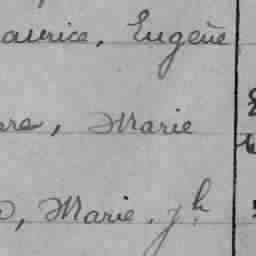 aurice, Eugène
re, Marie
, Marie. jh